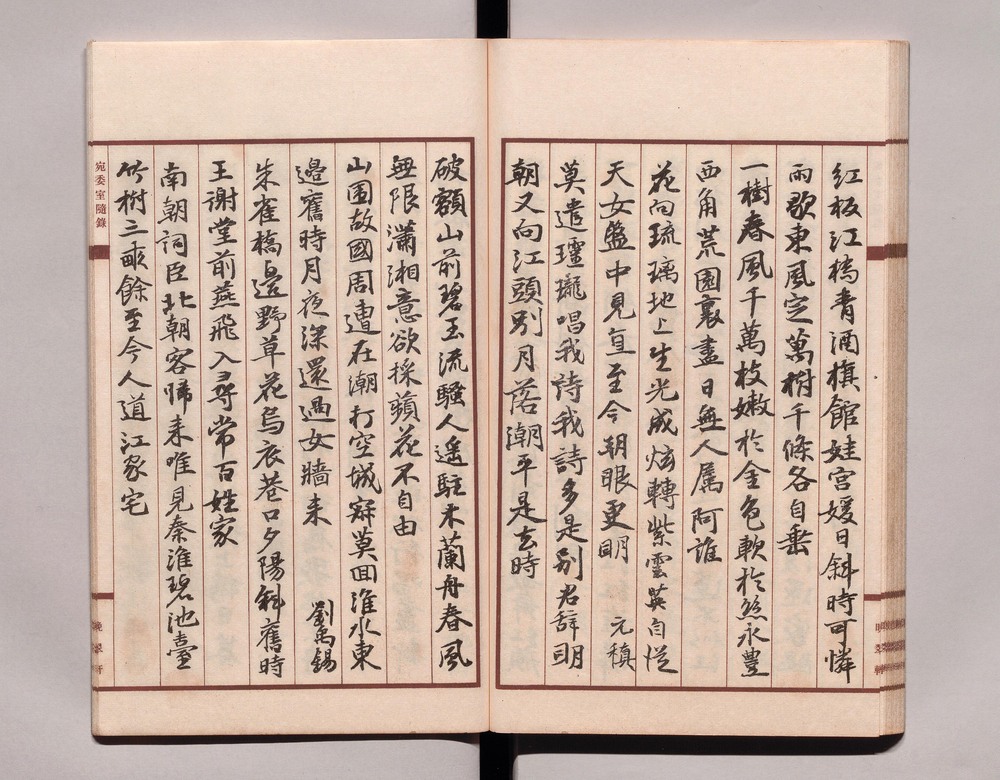 紅板江橋青酒旗館娃宮媛日斜時可憐
雨歇東風定萬樹千條各自垂
一樹春風千萬枝嫩於金色軟於絲永豐
西角荒園裏盡日無人屬阿誰
花向琉璃地上生光成炫轉紫雲英自從
天女盤中見直至今朝眼更明 元稹
莫遣瓏瓏唱我詩我詩多是別君辭明
朝又向江頭別月落潮平是去時
破額山前碧玉流騷人遥駐木蘭舟春風
無限瀟湘意欲採蘋花不自由
山圍故國周遭在潮打空城寂莫回淮水東
邊舊時月夜深還過女牆来 劉禹錫
朱雀橋邊野草花烏衣巷口夕陽斜舊時
王謝堂前燕飛入尋常百姓家
南朝詞臣北朝客歸来唯見秦淮碧池臺
竹樹三畝餘至今人道江家宅
宛委室隨錄
晚翠軒